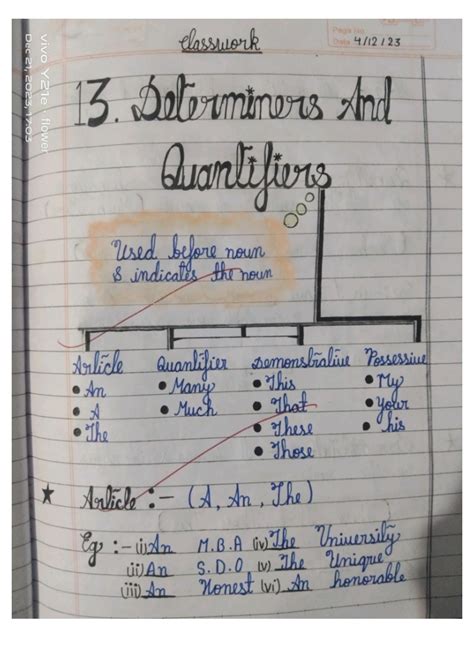 vivo Y21e flower
Dec 21, 2023, 17:03
Page No.
Date 4/12/23
classwork
13. Determiners And
Quantifiers
Used before noun
& indicates the noun
Article Quantifier Demonstrative Possessive
• An • Many • This • My
• A • Much • That • Your
• The • These • his
• Those
★ Article :- (A, An, The)
Eg :- (i) An M.B.A (iv) The University
(ii) An S.D.O (v) The Unique
(iii) An Honest (vi) An honorable